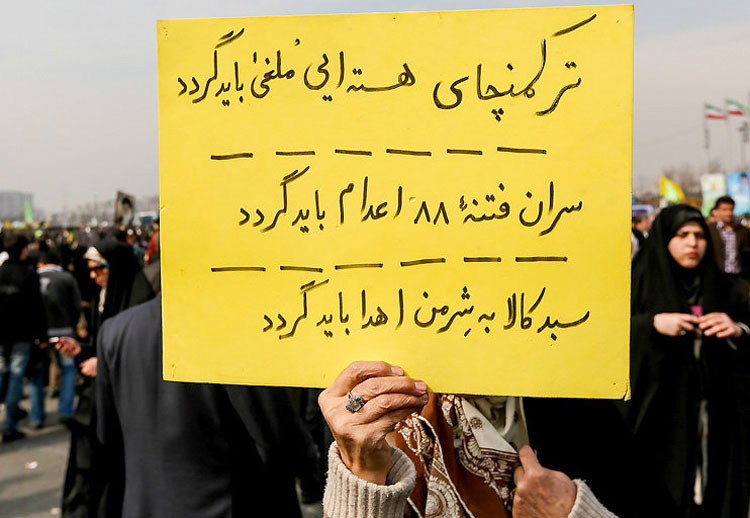 ترکمنچای هسته ایی مُلغیٰ باید گردد
سران فتنهٔ ۸۸ اعدام باید گردد
سبد کالا به شِرمن اهدا باید گردد